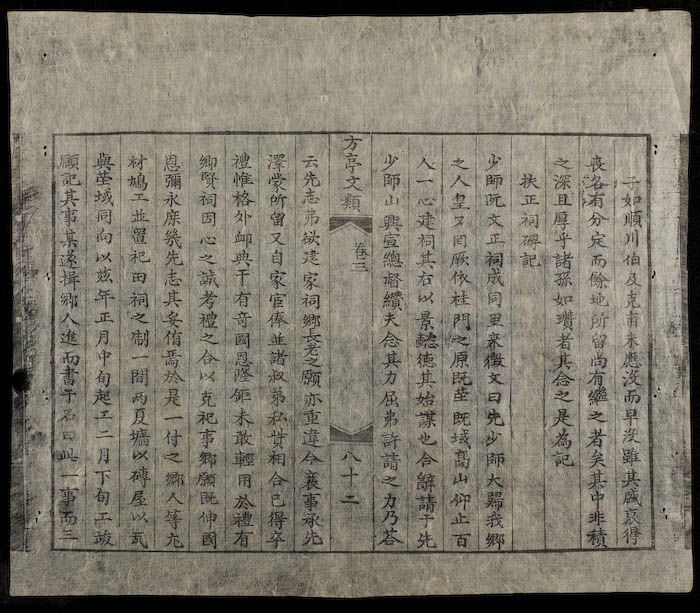 子如順川伯及克甫未應沒而早沒雖其感哀得
喪各有分定而餘地所留尚有繼之者矣其中非積
之深且厚乎諸孫如瓚者其念之是為記
扶正祠碑記
少師阮文正祠成同里來徵文曰先少師大歸我鄉
之人皇又因厥依桂門之原既塋既域高山仰止百
人一心建祠其右以景懿德其始謀也合辭請于先
少師山興宣總督纘夫念其力屈弗許請之力乃荅
方亭文類
卷三
八十二
云先志弗欲建家祠鄉長老之願亦重違今襄事承先
澤蒙所留又自家宦俸並諸叔弟私貲相合已得卒
禮惟格外卹典干有奇國恩隆鉅未敢輕用於禮有
鄉賢祠因心之誠考禮之合以克祀事鄉願既伸國
恩彌永庶幾先志其妥侑焉於是一付之鄉人等充
材鳩工並置祀田祠之制一間兩夏墻以磚屋以瓦
與塋域同向以玆年正月中旬起工二月下旬工竣
願記其事某遂揖鄉人進而書于石曰此一事而三